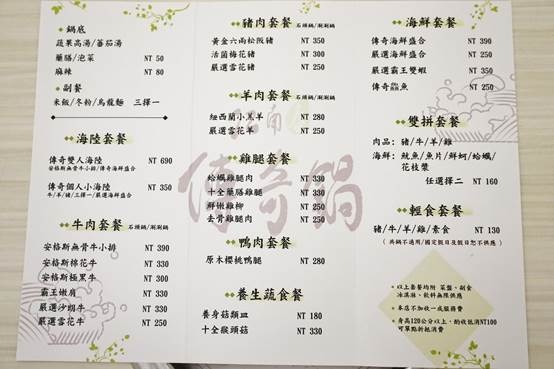 鍋底
蔬果高湯/蕃茄湯
藥膳/泡菜 NT 50
麻辣 NT 80
副餐
米飯/冬粉/烏龍麵 三擇一
海陸套餐
傳奇雙人海陸 NT 690
安格斯無骨牛小排/傳奇海鮮盛合
傳奇個人小海陸 NT 350
牛/羊/豬/三擇一/嚴選海鮮盛合
牛肉套餐 石頭鍋/涮涮鍋
安格斯無骨牛小排 NT 390
安格斯棉花牛 NT 330
安格斯極黑牛 NT 300
霸王嫩肩 NT 330
嚴選沙朗牛 NT 330
嚴選雪花牛 NT 250
豬肉套餐 石頭鍋/涮涮鍋
黃金六兩松阪豬 NT 350
活菌梅花豬 NT 300
嚴選雪花豬 NT 250
羊肉套餐 石頭鍋/涮涮鍋
紐西蘭小羔羊 NT 280
嚴選雪花羊 NT 250
雞腿套餐
蛤蠣雞腿肉 NT 330
十全藥膳雞 NT 330
鮮嫩雞柳 NT 250
去骨雞腿肉 NT 250
鴨肉套餐
原木櫻桃鴨腿 NT 280
養生蔬食餐
養身菇類皿 NT 180
十全猴頭菇 NT 330
傳奇鍋
海鮮套餐
傳奇海鮮盛合 NT 390
嚴選海鮮盛合 NT 250
嚴選霸王雙蝦 NT 350
傳奇鱻魚 NT 250
雙拼套餐
肉品:豬/牛/羊/雞
海鮮:魷魚/魚片/鮮蚵/蛤蠣/
花枝漿
任選擇二 NT 160
輕食套餐
豬/牛/羊/雞/素食 NT 130
(共鍋不適用/國定假日及假日恕不供應)
以上套餐均附 菜盤、副食
冰淇淋、飲料無限供應
本店不加收一成服務費
身高120公分以上,酌收低消NT100
可單點折抵消費